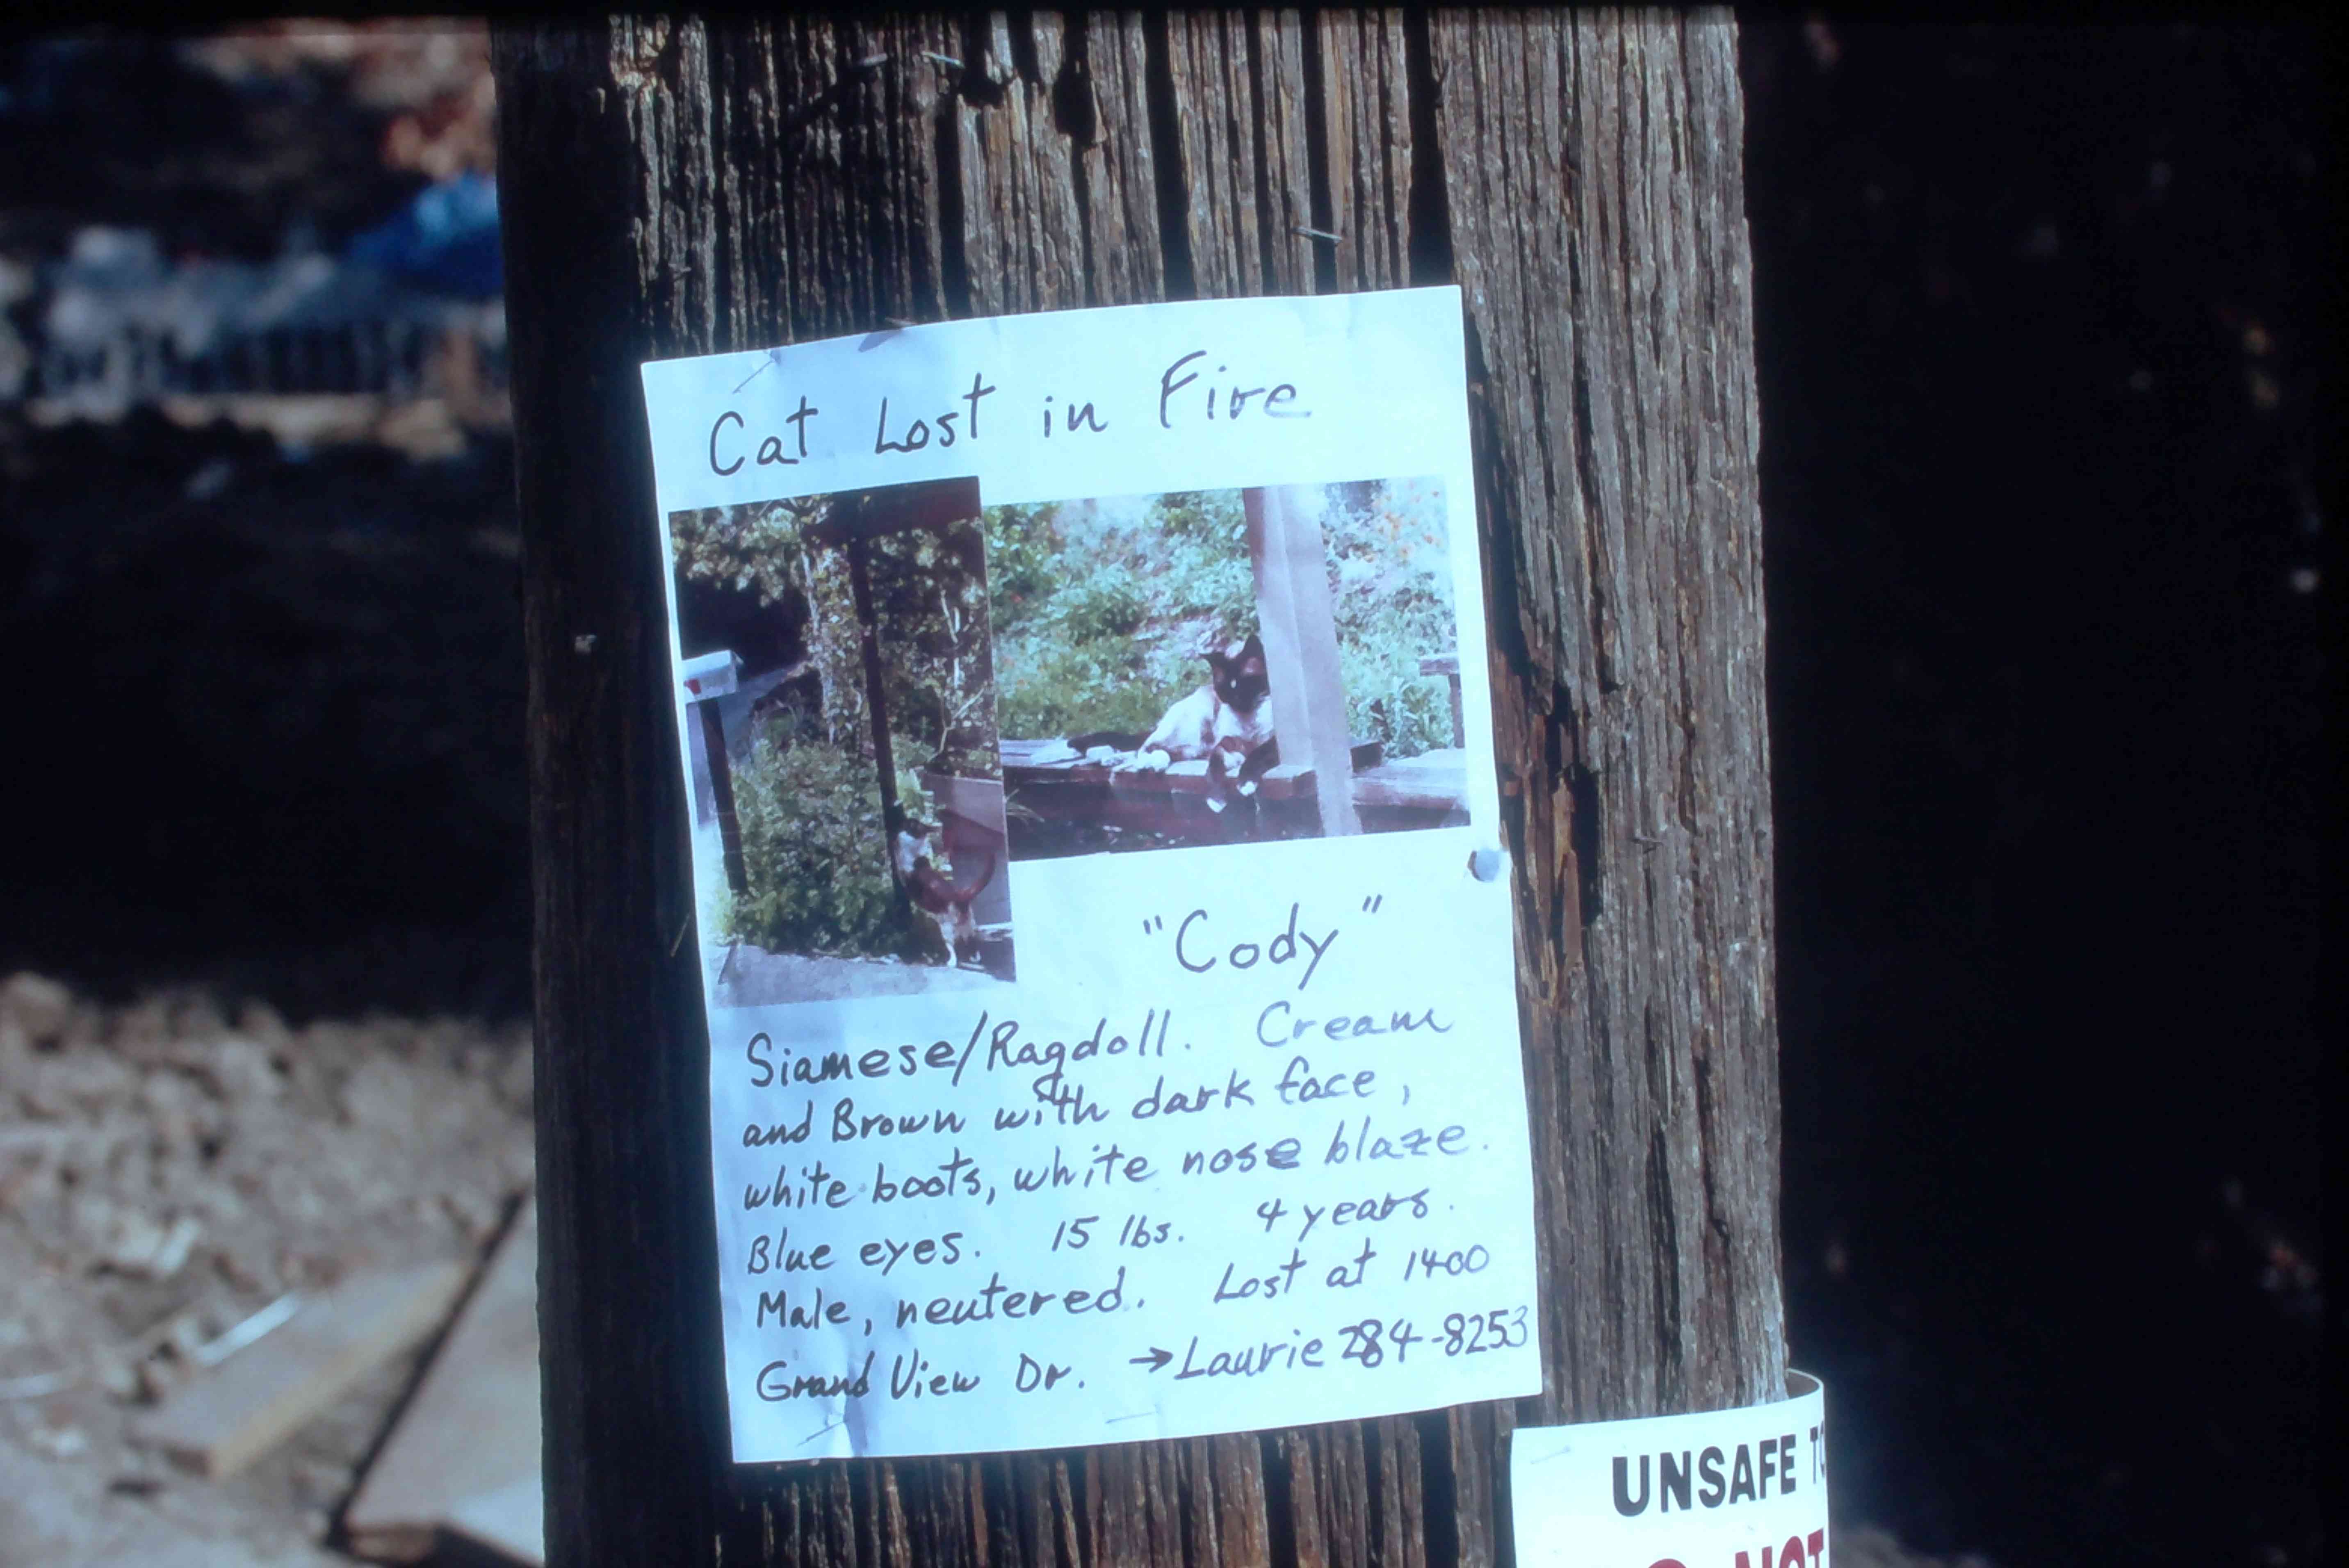 Cat Lost in Fire
"Cody"
Siamese/Ragdoll. Cream
and Brown with dark face,
white boots, white nose blaze.
Blue eyes. 15 lbs. 4 years.
Male, neutered. Lost at 1400
Grand View Dr. → Laurie 284-8253
UNSAFE TO
NOT